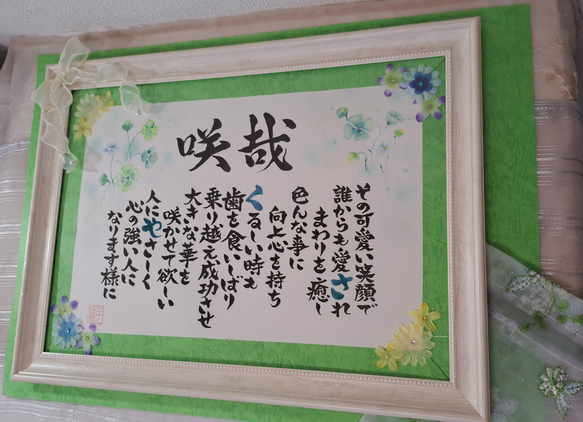 咲哉
その可愛い笑顔で
誰からも愛され
まわりを癒し
色んな事に
向上心を持ち
くるしい時も
歯を食いしばり
乗り越え成功させ
大きな華を
咲かせて欲しい
人にやさしく
心の強い人に
なります様に